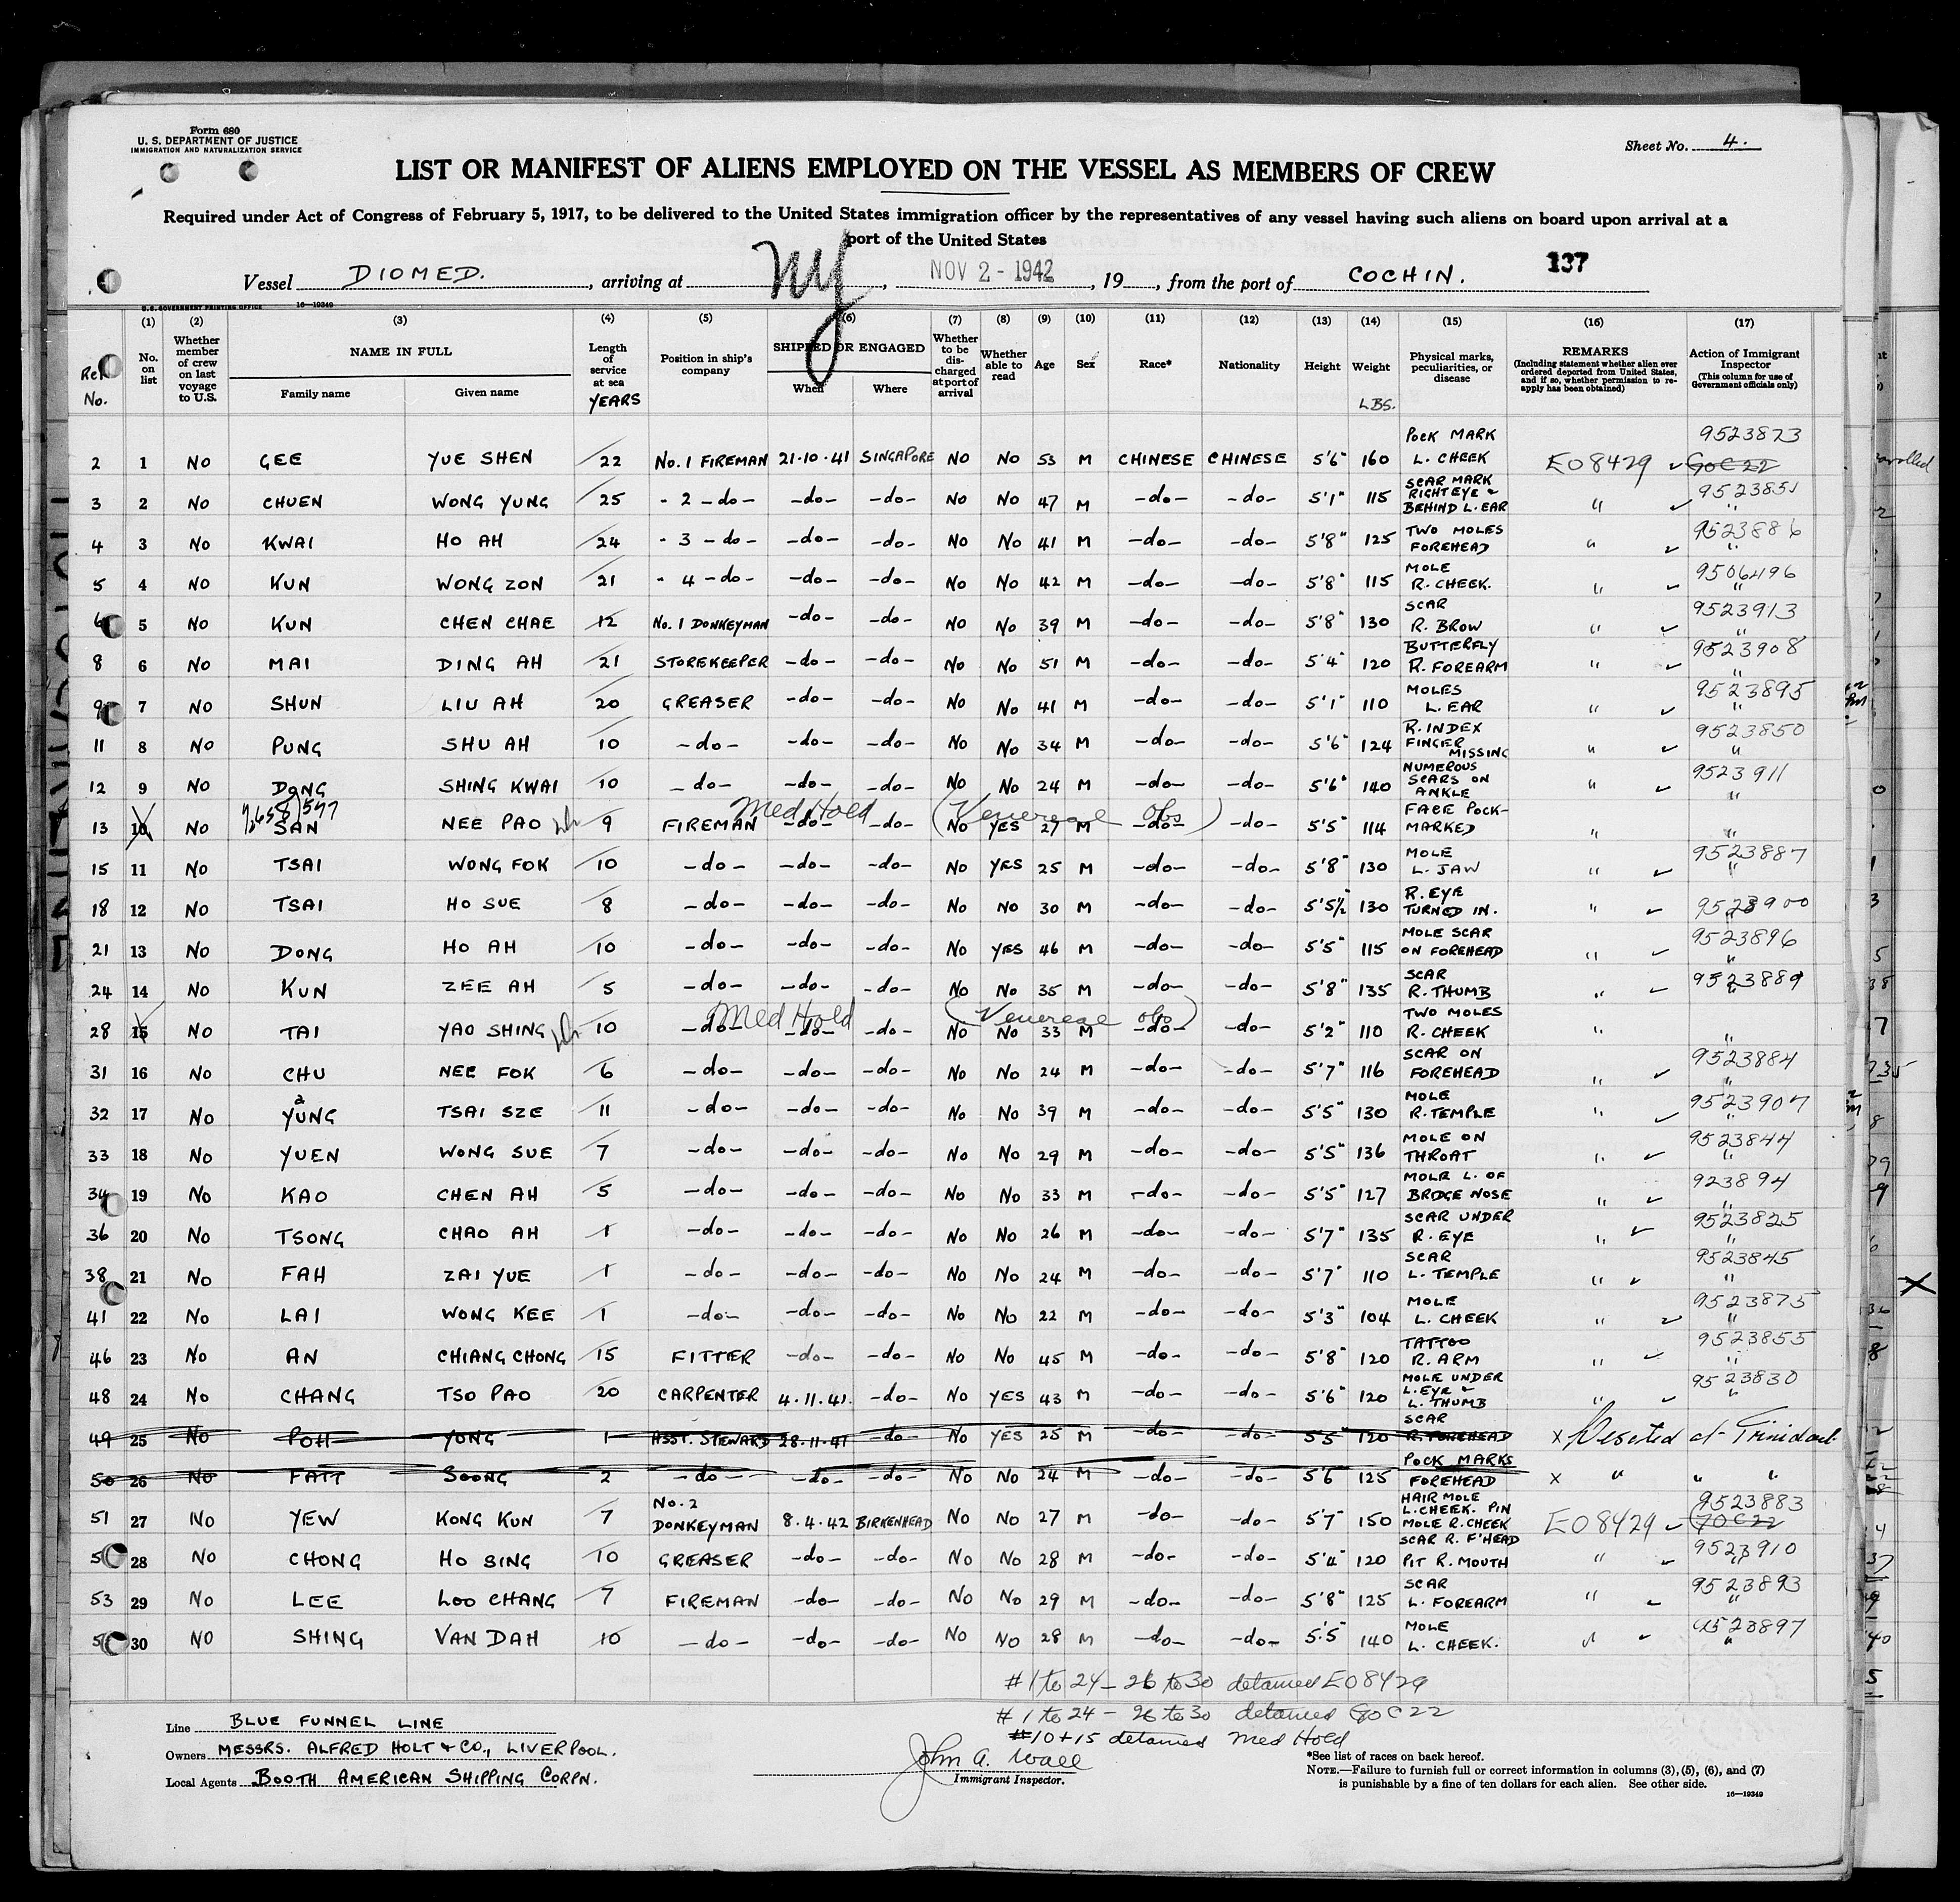 Form 680
U. S. DEPARTMENT OF JUSTICE
IMMIGRATION AND NATURALIZATION SERVICE
Sheet No. 4.
LIST OR MANIFEST OF ALIENS EMPLOYED ON THE VESSEL AS MEMBERS OF CREW
Required under Act of Congress of February 5, 1917, to be delivered to the United States immigration officer by the representatives of any vessel having such aliens on board upon arrival at a
port of the United States
137
Vessel DIOMED. , arriving at NY , NOV 2 - 1942 , 19 , from the port of COCHIN.
U. S. GOVERNMENT PRINTING OFFICE 16—19349
(1) (2) (3) (4) (5) (6) (7) (8) (9) (10) (11) (12) (13) (14) (15) (16) (17)
Ref No. No. on list Whether member of crew on last voyage to U.S. NAME IN FULL Family name Given name Length of service at sea YEARS Position in ship's company SHIPPED OR ENGAGED When Where Whether to be discharged at port of arrival Whether able to read Age Sex Race* Nationality Height Weight LBS. Physical marks, peculiarities, or disease REMARKS (Including statement whether alien ever ordered deported from United States, and if so, whether permission to reapply has been obtained) Action of Immigrant Inspector (This column for use of Government officials only)
2 1 NO GEE YUE SHEN 22 No. 1 FIREMAN 21·10·41 SINGAPORE NO NO 53 M CHINESE CHINESE 5'6" 160 POCK MARK L. CHEEK EO 8429 ✓ 9523873 GOC 22
3 2 NO CHUEN WONG YUNG 25 " 2 -do- -do- -do- NO NO 47 M -do- -do- 5'1" 115 SCAR MARK RIGHT EYE & BEHIND L. EAR " ✓ 9523851 "
4 3 NO KWAI HO AH 24 " 3 -do- -do- -do- NO NO 41 M -do- -do- 5'8" 125 TWO MOLES FOREHEAD " ✓ 9523886 "
5 4 NO KUN WONG ZON 21 " 4 -do- -do- -do- NO NO 42 M -do- -do- 5'8" 115 MOLE R. CHEEK. " ✓ 9506496 "
6 5 NO KUN CHEN CHAE 12 No. 1 DONKEYMAN -do- -do- NO NO 39 M -do- -do- 5'8" 130 SCAR R. BROW " ✓ 9523913 "
8 6 NO MAI DING AH 21 STOREKEEPER -do- -do- NO NO 51 M -do- -do- 5'4" 120 BUTTERFLY R. FOREARM " ✓ 9523908 "
9 7 NO SHUN LIU AH 20 GREASER -do- -do- NO NO 41 M -do- -do- 5'1" 110 MOLES L. EAR " ✓ 9523895 "
11 8 NO PUNG SHU AH 10 -do- -do- -do- NO NO 34 M -do- -do- 5'6" 124 R. INDEX FINGER MISSING " ✓ 9523850 "
12 9 NO DONG SHING KWAI 10 -do- -do- -do- NO NO 24 M -do- -do- 5'6" 140 NUMEROUS SCARS ON ANKLE " ✓ 9523911 "
Med Hold (Venereal obs)
13 10 NO SAN NEE PAO 9 FIREMAN -do- -do- NO YES 27 M -do- -do- 5'5" 114 FACE POCK-MARKED " "
15 11 NO TSAI WONG FOK 10 -do- -do- -do- NO YES 25 M -do- -do- 5'8" 130 MOLE L. JAW " ✓ 9523887 "
18 12 NO TSAI HO SUE 8 -do- -do- -do- NO NO 30 M -do- -do- 5'5½" 130 R. EYE TURNED IN. " ✓ 9523900
21 13 NO DONG HO AH 10 -do- -do- -do- NO YES 46 M -do- -do- 5'5" 115 MOLE SCAR ON FOREHEAD " ✓ 9523896 "
24 14 NO KUN ZEE AH 5 -do- -do- -do- NO NO 35 M -do- -do- 5'8" 135 SCAR R. THUMB " ✓ 9523889 "
Med Hold (Venereal obs)
28 15 NO TAI YAO SHING 10 -do- -do- -do- NO NO 33 M -do- -do- 5'2" 110 TWO MOLES R. CHEEK " "
31 16 NO CHU NEE FOK 6 -do- -do- -do- NO NO 24 M -do- -do- 5'7" 116 SCAR ON FOREHEAD " ✓ 9523884 "
32 17 NO YUNG TSAI SZE 11 -do- -do- -do- NO NO 39 M -do- -do- 5'5" 130 MOLE R. TEMPLE " ✓ 9523907 "
33 18 NO YUEN WONG SUE 7 -do- -do- -do- NO NO 29 M -do- -do- 5'5" 136 MOLE ON THROAT " ✓ 9523844 "
34 19 NO KAO CHEN AH 5 -do- -do- -do- NO NO 33 M -do- -do- 5'5" 127 MOLE L. OF BRIDGE NOSE " ✓ 923894 "
36 20 NO TSONG CHAO AH 1 -do- -do- -do- NO NO 26 M -do- -do- 5'7" 135 SCAR UNDER R. EYE " ✓ 9523825 "
38 21 NO FAH ZAI YUE 1 -do- -do- -do- NO NO 24 M -do- -do- 5'7" 110 SCAR L. TEMPLE " ✓ 9523845 "
41 22 NO LAI WONG KEE 1 -do- -do- -do- NO NO 22 M -do- -do- 5'3" 104 MOLE L. CHEEK " ✓ 9523875 "
46 23 NO AN CHIANG CHONG 15 FITTER -do- -do- NO NO 45 M -do- -do- 5'8" 120 TATTOO R. ARM " ✓ 9523855 "
48 24 NO CHANG TSO PAO 20 CARPENTER 4·11·41. -do- NO YES 43 M -do- -do- 5'6" 120 MOLE UNDER L. EYE & L. THUMB " ✓ 9523830 "
49 25 NO POH YONG 1 ASST. STEWARD 28·11·41 -do- NO YES 25 M -do- -do- 5'5 120 SCAR R. FOREHEAD x Deserted at Trinidad
50 26 NO FATT SOONG 2 -do- -do- -do- NO NO 24 M -do- -do- 5'6 125 POCK MARKS FOREHEAD x " " "
51 27 NO YEW KONG KUN 7 No. 2 DONKEYMAN 8·4·42 BIRKENHEAD NO NO 27 M -do- -do- 5'7" 150 HAIR MOLE L. CHEEK. PIN MOLE R. CHEEK EO 8429 ✓ 9523883 GOC 22
5 28 NO CHONG HO SING 10 GREASER -do- -do- NO NO 28 M -do- -do- 5'4" 120 SCAR R. F'HEAD PIT R. MOUTH " ✓ 9523910 "
53 29 NO LEE LOO CHANG 7 FIREMAN -do- -do- NO NO 29 M -do- -do- 5'8" 125 SCAR L. FOREARM " ✓ 9523893 "
5 30 NO SHING VAN DAH 10 -do- -do- -do- NO NO 28 M -do- -do- 5'5" 140 MOLE L. CHEEK. " ✓ 9523897 "
# 1 to 24 - 26 to 30 detained EO 8429
# 1 to 24 - 26 to 30 detained GOC 22
#10 + 15 detained Med Hold
Line BLUE FUNNEL LINE
Owners MESSRS. ALFRED HOLT & CO., LIVERPOOL.
Local Agents BOOTH AMERICAN SHIPPING CORPN.
John A. Wall
Immigrant Inspector.
*See list of races on back hereof.
NOTE.—Failure to furnish full or correct information in columns (3), (5), (6), and (7)
is punishable by a fine of ten dollars for each alien. See other side.
16—19349